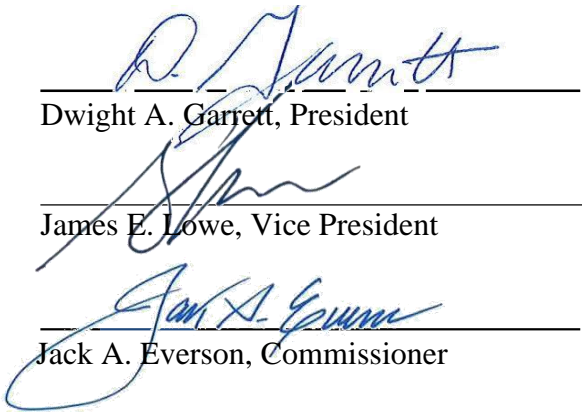 D. Garrett
Dwight A. Garrett, President
James E. Lowe, Vice President
Jack A. Everson
Jack A. Everson, Commissioner